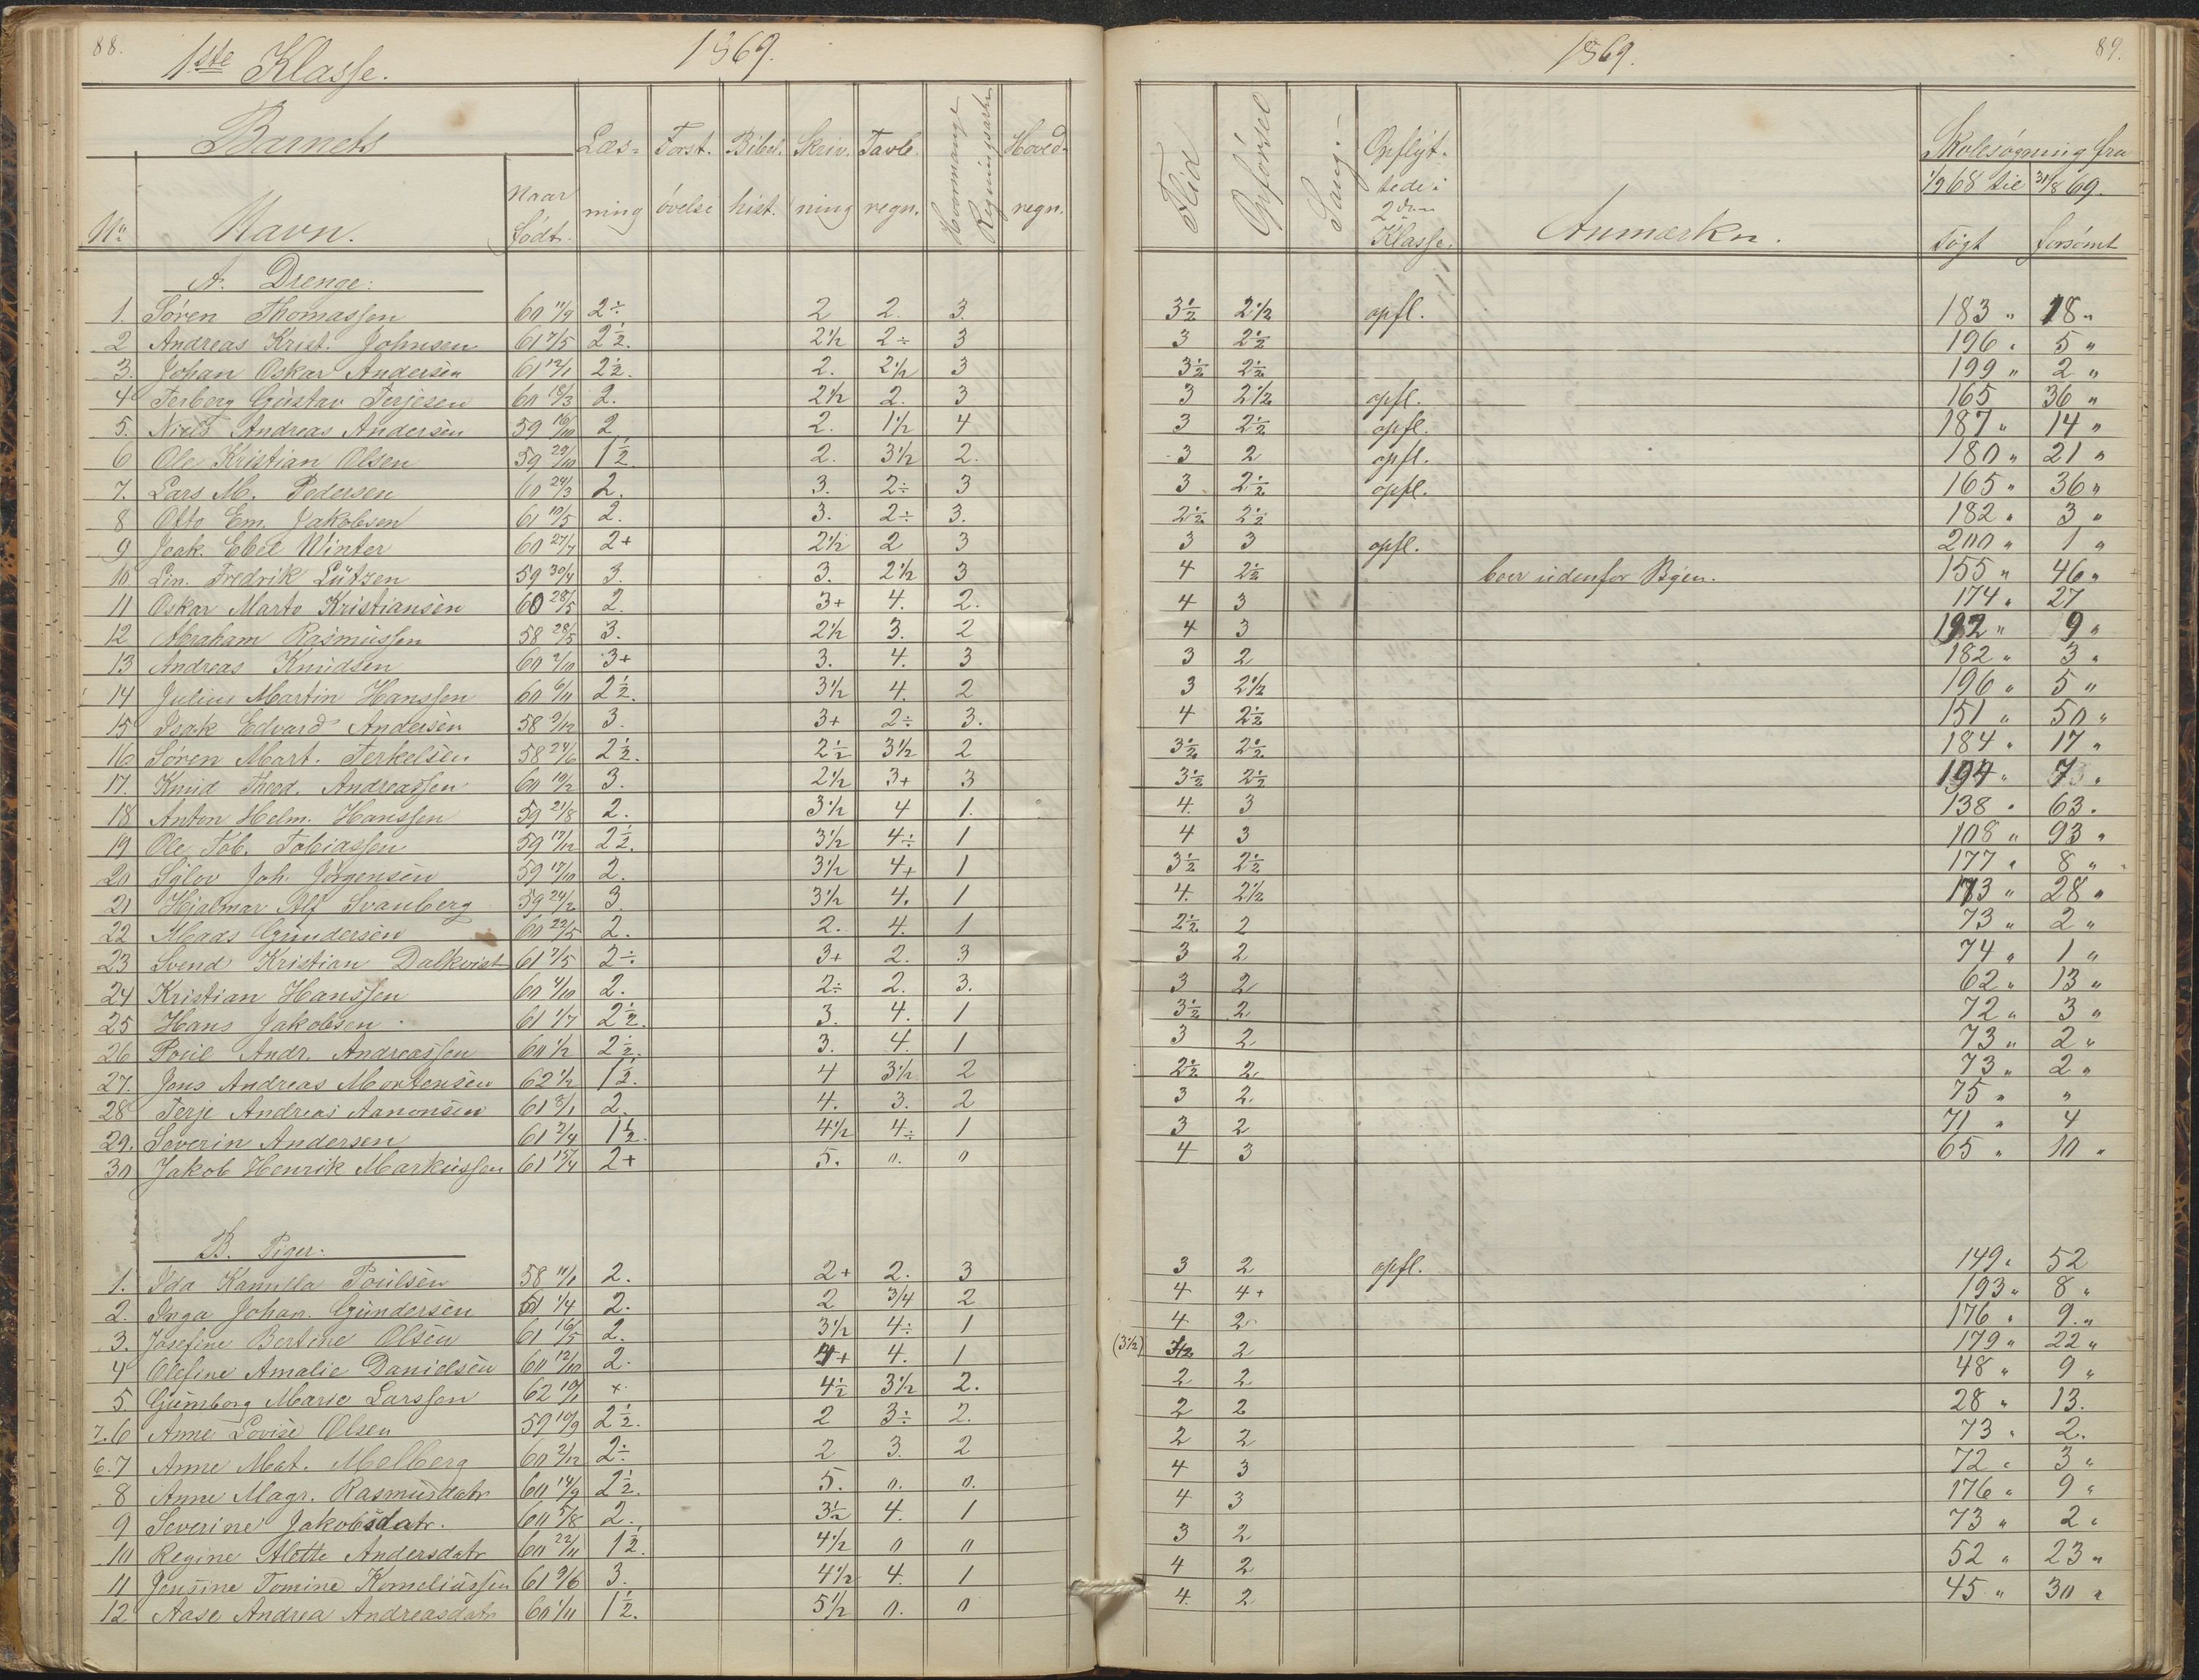 88.
1ste Klasse.
1869.
Barnets
No
Navn.
Naar født.
Læsning
Forst. øvelse
Bibel. hist.
Skrivning
Tavle. regn.
Hvormange Regningsarter
Hoved- regn.
A. Drenge:
1. Søren Thomassen 60 11/9 2÷ 2 2. 3.
2 Andreas Krist. Johnsen 61 17/5 2½. 2½ 2÷ 3
3. Johan Oskar Andersen 61 12/1 2½. 2. 2½ 3
4 Terberg Gustav Terjesen 60 18/3 2. 2½ 2. 3
5. Niels Andreas Andersen 59 16/10 2 2. 1½ 4
6 Ole Kristian Olsen 59 29/10 1½ 2. 3½ 2.
7. Lars M. Pedersen 60 24/3 2. 3. 2÷ 3
8 Otto Em. Jakobsen 61 10/5 2. 3. 2÷ 3.
9 Joak. Ebel Winter 60 27/7 2+ 2½ 2 3
10 Lin. Fredrik Lützen 59 30/4 3. 3. 2½ 3
11 Oskar Marto Kristiansen 60 28/5 2. 3+ 4. 2.
12 Abraham Rasmussen 58 28/5 3. 2½ 3. 2
13 Andreas Knudsen 60 2/10 3+ 3. 4. 3
14 Julius Martin Hanssen 60 6/11 2½. 3½ 4. 2
15 Isak Edvard Andersen 58 9/12 3. 3+ 2÷ 3.
16 Søren Mart. Terkelsen 58 24/6 2½. 2½ 3½ 2
17. Knud Theod. Andreassen 60 10/2 3. 2½ 3+ 3
18 Anton Helm. Hanssen 59 21/8 2. 3½ 4 1.
19 Ole Tob. Tobiassen 59 17/12 2½. 3½ 4÷ 1
20 Sølov Joh. Jørgensen 59 17/10 2. 3½ 4+ 1
21 Hjalmar Alf Svanberg 59 24/2 3. 3½ 4. 1
22 Mads Gundersen 60 23/5 2. 2. 4. 1
23 Svend Kristian Dalkvist 61 7/5 2÷ 3+ 2. 3
24 Kristian Hanssen 60 4/10 2. 2÷ 2. 3.
25 Hans Jakobsen 61 1/7 2½. 3. 4. 1
26 Poul Andr. Andreassen 60 1/2 2½. 3. 4. 1
27. Jens Andreas Mortensen 62 1/2 1½. 4 3½ 2
28 Terje Andreas Aanonsen 61 3/1 2. 4. 3. 2
29. Severin Andersen 61 2/4 1½. 4½ 4÷ 1
30 Jakob Henrik Markussen 61 15/4 2+ 5. 0. 0
B. Piger:
1. Ida Kamilla Poulsen 58 11/1 2. 2+ 2. 3
2. Inga Johan. Gundersen 61 1/4 2. 2 3/4 2
3. Josefine Bertine Olsen 61 16/5 2. 3½ 4÷ 1
4 Olefine Amalie Danielsen 60 12/10 2. 4+ 4. 1
5 Gumborg Marie Larssen 62 10/1 + 4½ 3½ 2.
7.6 Anne Lovise Olsen 59 10/9 2½. 2 3÷ 2.
6.7 Anne Mat. Melberg 60 2/12 2÷ 2 3. 2
8 Anne Magr. Rasmusdatr 60 14/9 2½. 5. 0. 0.
9 Severine Jakobsdatr. 60 5/8 2. 3½ 4. 1
10 Regine Alette Andersdatr 60 22/11 1½. 4½ 0 0
11 Jensine Tomine Korneliussen 61 9/6 3. 4½ 4. 1
12 Aase Andrea Andreasdatr 60 1/11 1½. 5½ 0. 0
1869.
89.
Flid
Opførsel
Sang.
Opflyttede i 2den Klasse.
Anmærkn.
Skolesøgning fra
1/9 68 til 31/8 69.
søgt forsømt
3½ 2½ opfl. 183 " 18 "
3 2½ 196 " 5 "
3½ 2½ 199 " 2 "
3 2½ opfl. 165 36 "
3 2½ opfl. 187 " 14 "
3 2 opfl. 180 " 21 "
3 2½ opfl. 165 " 36 "
2½ 2½ 182 " 3 "
3 3 opfl. 200 " 1 "
4 2½ boer udenfor Byen. 155 " 46 "
4 3 174 " 27
4 3 192 " 9 "
3 2 182 " 3 "
3 2½ 196 " 5 "
4 2½ 151 " 50 "
3½ 2½ 184 " 17 "
3½ 2½ 194 " 7 "
4. 3 138 " 63.
4 3 108 " 93 "
3½ 2½ 177 " 8 "
4. 2½ 173 " 28 "
2½ 2 73 " 2 "
3 2 74 " 1 "
3 2 62 " 13 "
3½ 2 72 " 3 "
3 2 73 " 2 "
2½ 2 73 " 2 "
3 2 75 " "
3 2 71 " 4
4 3 65 " 10 "
3 2 opfl. 149 " 52
4 4+ 193 " 8 "
4. 2 176 " 9 "
(3½) 3½ 2 179 " 22 "
2 2 48 " 9 "
2 2 28 " 13.
2 2 73 " 2.
4 3 72 " 3 "
4 3 176 " 9 "
3 2 73 " 2 "
4 2 52 " 23 "
4. 2 45 " 30 "